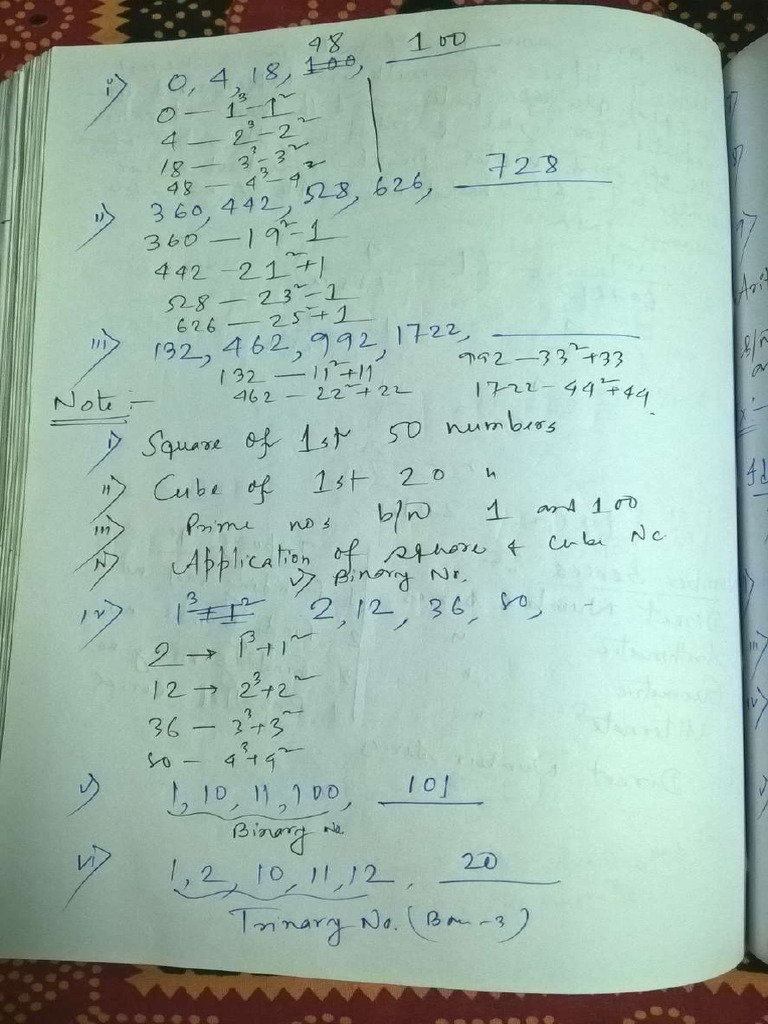 i) 0, 4, 18, 48, 100
0 — 1³-1²
4 — 2³-2²
18 — 3³-3²
48 — 4³-4²
ii) 360, 442, 528, 626, 728
360 — 19²-1
442 - 21²+1
528 — 23²-1
626 — 25²+1
iii) 132, 462, 992, 1722, ____
132 — 11²+11 992 — 33²+33
462 — 22²+22 1722 - 44²+44
Note :-
i) Square of 1st 50 numbers
ii) Cube of 1st 20 "
iii) Prime nos b/n 1 and 100
iv) Application of square & cube No
v) Binary No.
iv) 1³+1² 2, 12, 36, 80,
2 → 1³+1²
12 → 2³+2²
36 — 3³+3²
80 — 4³+4²
v) 1, 10, 11, 100, 101
Binary No
vi) 1, 2, 10, 11, 12, 20
Trinary No. ( -3)